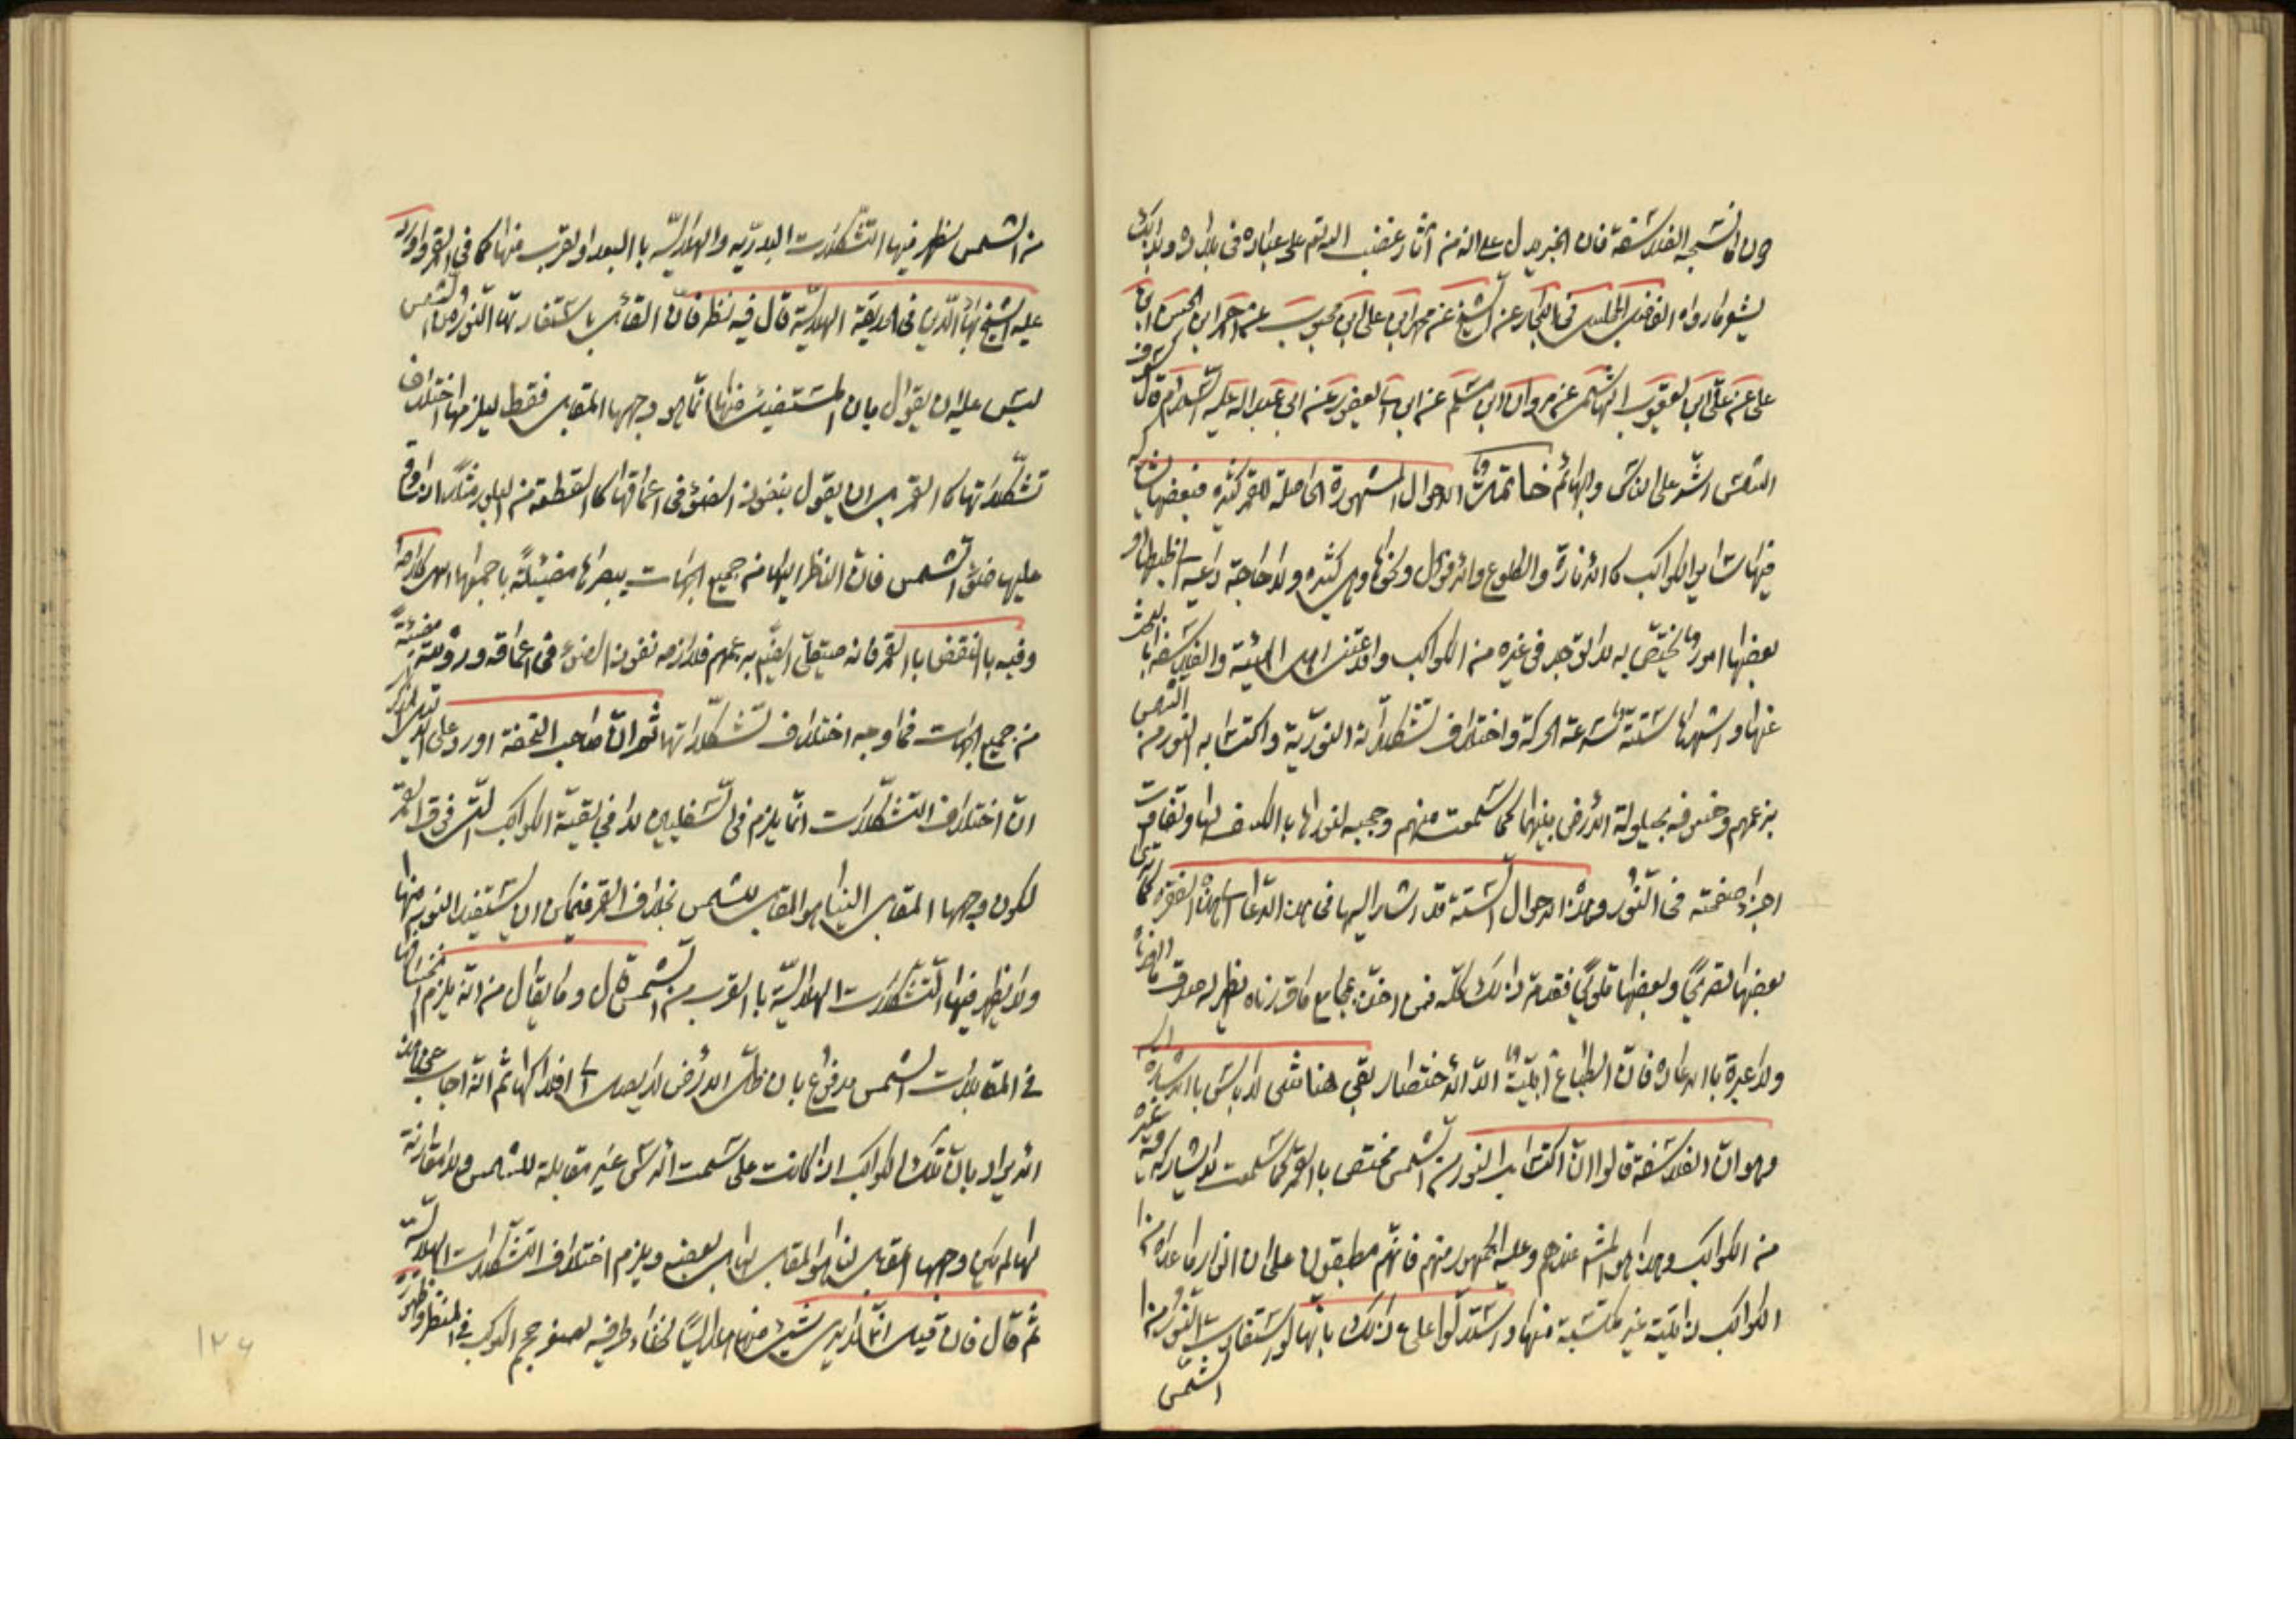 ون كما تشبحه الفلاسفة فان الخبر يدل على انه من آثار غضب الله تعم على عباده فى بلاده ولذلك
يشعر ما رواه الفاضل المجلسى فى البحار عن الشيخ عن محمد ابن على ابن محبوب عن احمد ابن الحسن ابن
على عن على ابن يعقوب الهاشمى عن مروان ابن مسلم عن ابن ابى يعفور عن ابى عبد الله عليه السلام قال
الشمس اشد على الناس والبهائم خاتمة الاحوال المشهورة الحاصلة للقمر كثيرة فبعضها يشاركه
فيها سائر الكواكب كالانارة والطلوع والافول ونحوها وهى كثيرة ولا حاجة داعية الى ضبطها و
بعضها امور تختص به لا توجد فى غيره من الكواكب وقد اعتنى اهل الهيئة والفلاسفة بالبحث
عنها واشهرها ستة سرعة الحركة واختلاف تشكلاته النورية واكتسابه النور من الشمس
بزعمهم وخسوفه بحيلولة الارض بينهما كما سمعت منهم وحجبه لنورها بالكسف لها وتفاوت
اجزاء صفحته فى النور وهذه الاحوال الستة قد اشار اليها فى هذا الدعاء كما ترى
بعضها تصريحا وبعضها تلويحا فقد مر ذلك كله فمن اخذ بمجامع ما قررناه يظهر له صدق ما ادعيناه
ولا عبرة بالاعادة فان الطباع ابية الا الاختصار بقى هنا شئ لا باس بالاشارة اليه
وهو ان الفلاسفة قالوا ان اكتساب النور من الشمس مختص بالقمر كما سمعت لا يشاركه فيه غيره
من الكواكب وهذا هو المشهور عندهم وعليه الجمهور منهم فانهم مطبقون على ان انوار ما عداه من
الكواكب ذاتية غير مكتسبة منها واستدلوا على ذلك بانها لو استفادت النور من
الشمس
من الشمس لظهر فيها التشكلات البدرية والهلالية بالبعد والقرب منها كما فى القمر واورد
عليه الشيخ بهاء الدين فى الحديقة الهلالية قال فيه نظر فان القائل باستفادتها النور من الشمس
ليس عليه ان يقول بان المستضئ منها انما هو وجهها المقابل فقط ليلزمها اختلاف
تشكلاتها كالقمر بل ان يقول بنفوذ الضوء فى اعماقها كالقطعة من البلور مثلا اذا وقع
عليها ضوء الشمس فان الناظر اليها من جميع الجهات يبصرها مضيئة باجمعها
وفيه بالنقض بالقمر فانه صيقلى الجسم بزعمهم فلازمه نفوذ الضوء فى اعماقه ورؤيته مضيئة
من جميع الجهات فما وجه اختلاف تشكلاتها ثم ان صاحب التحفة اورد على الدليل المذكور
ان اختلاف التشكلات انما يلزم فى السفليين لا فى بقية الكواكب التى فوق الشمس
لكون وجهها المقابل الينا هو المقابل للشمس بخلاف القمر فيمكن ان تستفيد النور منها
ولا يظهر فيها التشكلات الهلالية بالقرب من الشمس قال وما يقال من انه يلزم انخسافها
فى المقابلات الشمس مدفوع بان ظل الارض لا يصل الى افلاكها ثم انه اجاب عن هذا
الايراد بان تلك الكواكب اذا كانت على سمت الراس غير مقابلة للشمس ولا مقارنة
لها لم يكن وجهها المقابل لنا هو المقابل لها بل بعضه ويلزم اختلاف التشكلات الهلالية
ثم قال فان قيل انما لا يرى شئ منها هلاليا لخفاء طرفيه لصغر حجم الكوكب فى المنظر وظهوره
١٢٦